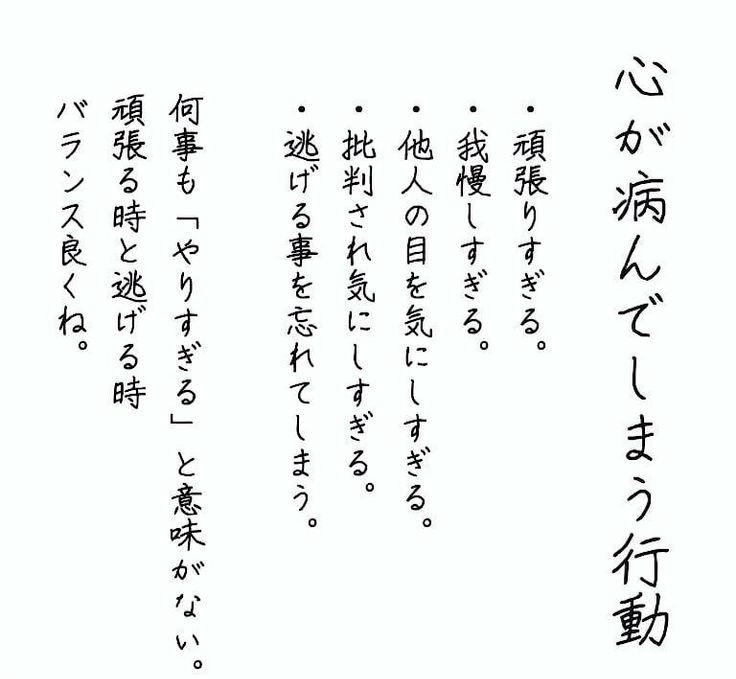 心が病んでしまう行動
・頑張りすぎる。
・我慢しすぎる。
・他人の目を気にしすぎる。
・批判され気にしすぎる。
・逃げる事を忘れてしまう。
何事も「やりすぎる」と意味がない。
頑張る時と逃げる時
バランス良くね。